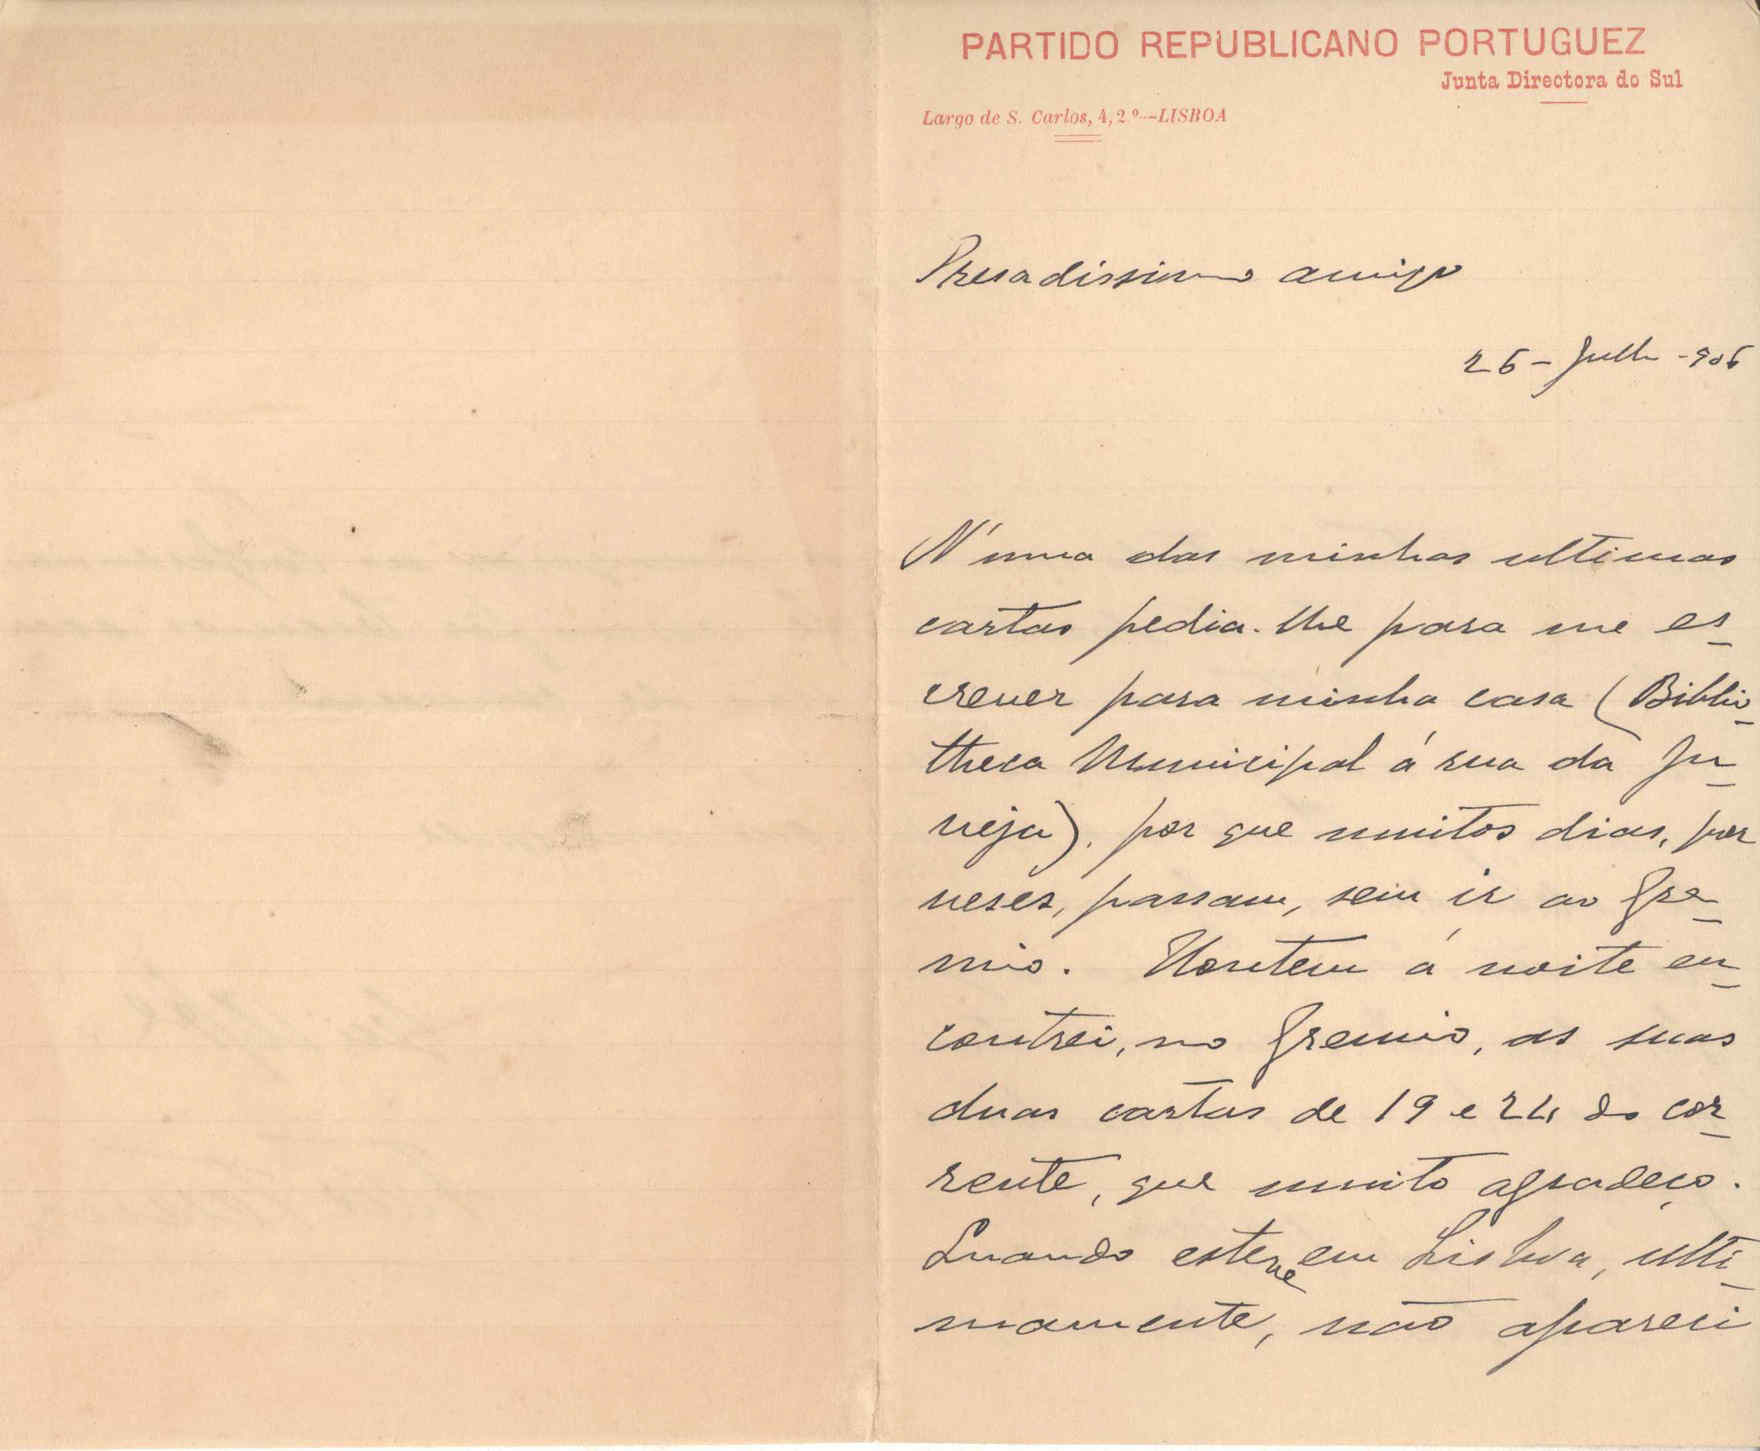 PARTIDO REPUBLICANO PORTUGUEZ
Junta Directora do Sul
Largo de S. Carlos, 4, 2.º--LISBOA
Presadissimo amigo
26 - Julh -906
N'uma das minhas ultimas
cartas pedia-lhe para me es-
crever para minha casa (Biblio-
theca Municipal á rua da In-
veja), por que muitos dias, por
veses, passam, sem ir ao Gre-
mio. Hontem á noite en-
contrei, no Gremio, as suas
duas cartas de 19 e 24 do cor-
rente, que muito agradeço.
Quando esteve em Lisboa, ulti-
mamente, não apareci